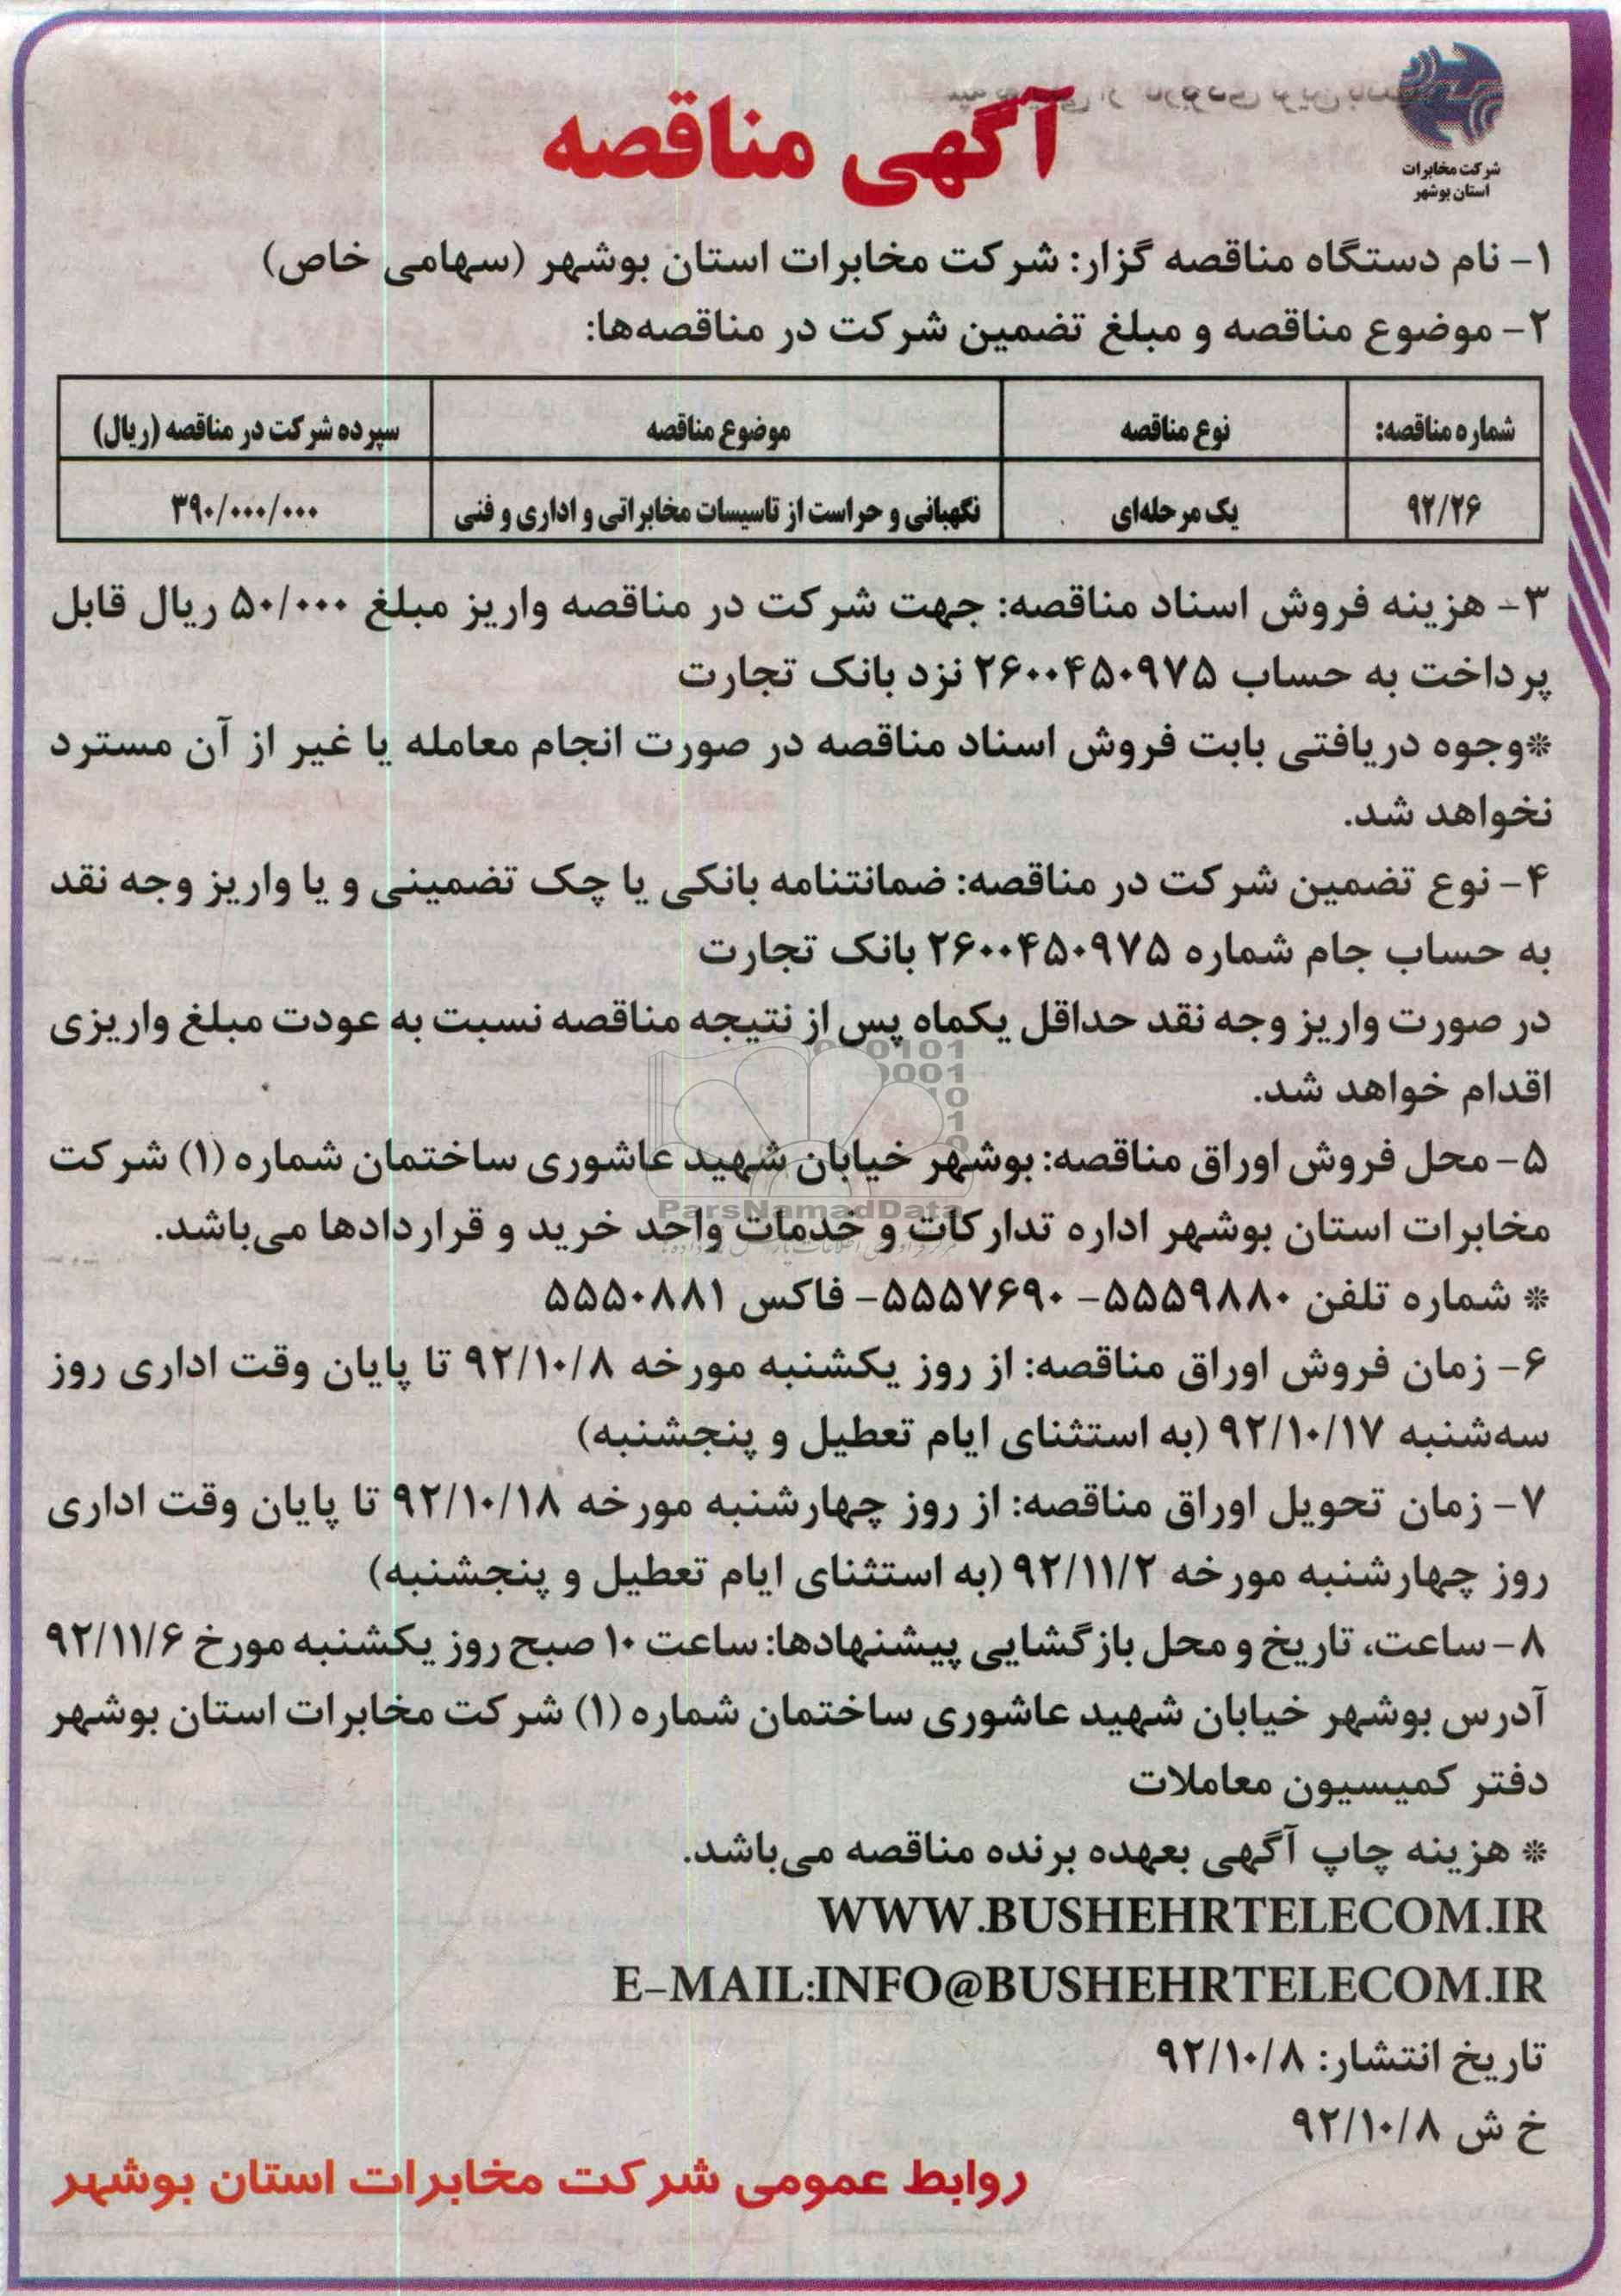 شرکت مخابرات
استان بوشهر
آگهی مناقصه
۱- نام دستگاه مناقصه گزار: شرکت مخابرات استان بوشهر (سهامی خاص)
۲- موضوع مناقصه و مبلغ تضمین شرکت در مناقصه‌ها:
شماره مناقصه: نوع مناقصه موضوع مناقصه سپرده شرکت در مناقصه (ریال)
۹۲/۲۶ یک مرحله‌ای نگهبانی و حراست از تاسیسات مخابراتی و اداری و فنی ۳۹۰/۰۰۰/۰۰۰
۳- هزینه فروش اسناد مناقصه: جهت شرکت در مناقصه واریز مبلغ ۵۰/۰۰۰ ریال قابل
پرداخت به حساب ۲۶۰۰۴۵۰۹۷۵ نزد بانک تجارت
*وجوه دریافتی بابت فروش اسناد مناقصه در صورت انجام معامله یا غیر از آن مسترد
نخواهد شد.
۴- نوع تضمین شرکت در مناقصه: ضمانتنامه بانکی یا چک تضمینی و یا واریز وجه نقد
به حساب جام شماره ۲۶۰۰۴۵۰۹۷۵ بانک تجارت
در صورت واریز وجه نقد حداقل یکماه پس از نتیجه مناقصه نسبت به عودت مبلغ واریزی
اقدام خواهد شد.
۵- محل فروش اوراق مناقصه: بوشهر خیابان شهید عاشوری ساختمان شماره (۱) شرکت
ParsNamadData
مخابرات استان بوشهر اداره تدارکات و خدمات واحد خرید و قراردادها می‌باشد.
* شماره تلفن ۵۵۵۹۸۸۰- ۵۵۵۷۶۹۰- فاکس ۵۵۵۰۸۸۱
۶- زمان فروش اوراق مناقصه: از روز یکشنبه مورخه ۹۲/۱۰/۸ تا پایان وقت اداری روز
سه‌شنبه ۹۲/۱۰/۱۷ (به استثنای ایام تعطیل و پنجشنبه)
۷- زمان تحویل اوراق مناقصه: از روز چهارشنبه مورخه ۹۲/۱۰/۱۸ تا پایان وقت اداری
روز چهارشنبه مورخه ۹۲/۱۱/۲ (به استثنای ایام تعطیل و پنجشنبه)
۸- ساعت، تاریخ و محل بازگشایی پیشنهادها: ساعت ۱۰ صبح روز یکشنبه مورخ ۹۲/۱۱/۶
آدرس بوشهر خیابان شهید عاشوری ساختمان شماره (۱) شرکت مخابرات استان بوشهر
دفتر کمیسیون معاملات
* هزینه چاپ آگهی بعهده برنده مناقصه می‌باشد.
WWW.BUSHEHRTELECOM.IR
E-MAIL:INFO@BUSHEHRTELECOM.IR
تاریخ انتشار: ۹۲/۱۰/۸
خ ش ۹۲/۱۰/۸
روابط عمومی شرکت مخابرات استان بوشهر